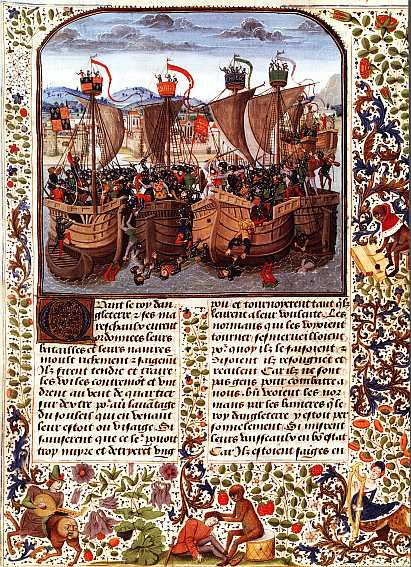 Quant le roy dan
gleterre & ses ma
reschaulx eurent
ordonnees leurs
batailles et leurs navires
moult richement et sagemt
Ilz firent tendre et traire
les voiles contremot et vin
drent au vent de quartier
sur dextre po avoir lavātage
du soleil qui en venant
leur estoit ou visage. Si
saviserent que ce le povoit
trop nuyre et detrierēt ung
pou et tournoyerent tant qlz
leurent a leur voulente. Les
normans qui les veoyent
tourner sesmerveilloient
pour quoy ilz faisoient. Et
disoient ilz ressoignēt et
reculent Car ilz ne sont
pas gens pour combatre a
nous. bn̄ veoient les nor
mans par les banieres q̄ le
roy dangleterre y estoit per
sonnelement. Si misrent
leurs vaisseaulx en bō estat
Car ilz estoient saiges en